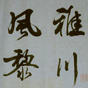 雅川
風黎